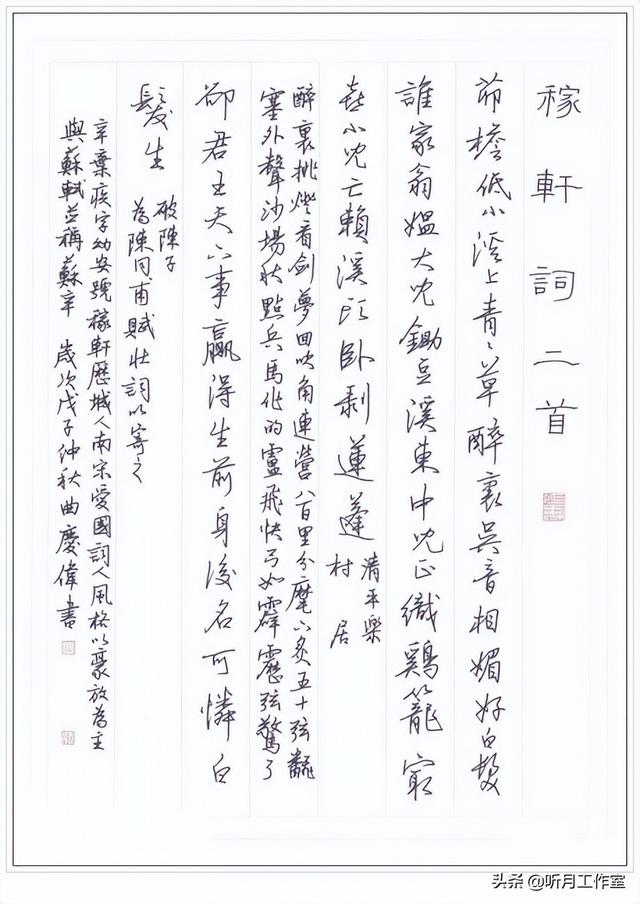 稼軒詞二首
茆檐低小溪上青〻草醉裏吳音相媚好白髮
誰家翁媼大兒鋤豆溪東中兒正織鷄籠㝡
喜小兒亡賴溪頭卧剥蓮蓬
清平樂
村居
醉裏挑燈看劍夢回吹角連營八百里分麾下炙五十弦翻
塞外聲沙場秋點兵馬作的盧飛快弓如霹靂弦驚了
卻君王天下事贏得生前身後名可憐白
髮生
破陳子
為陳同甫賦壯詞以寄之
辛棄疾字幼安號稼軒歷城人南宋愛國詞人風格以豪放為主
與蘇軾並稱蘇辛 歲次戊子仲秋曲慶偉書
头条 @听月工作室